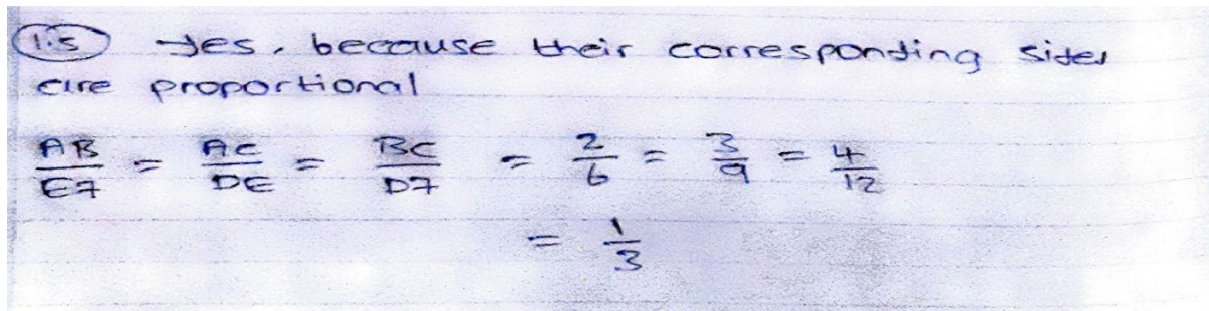 1.5 Yes, because their corresponding sides
are proportional
AB/EF = AC/DE = BC/DF = 2/6 = 3/9 = 4/12
= 1/3